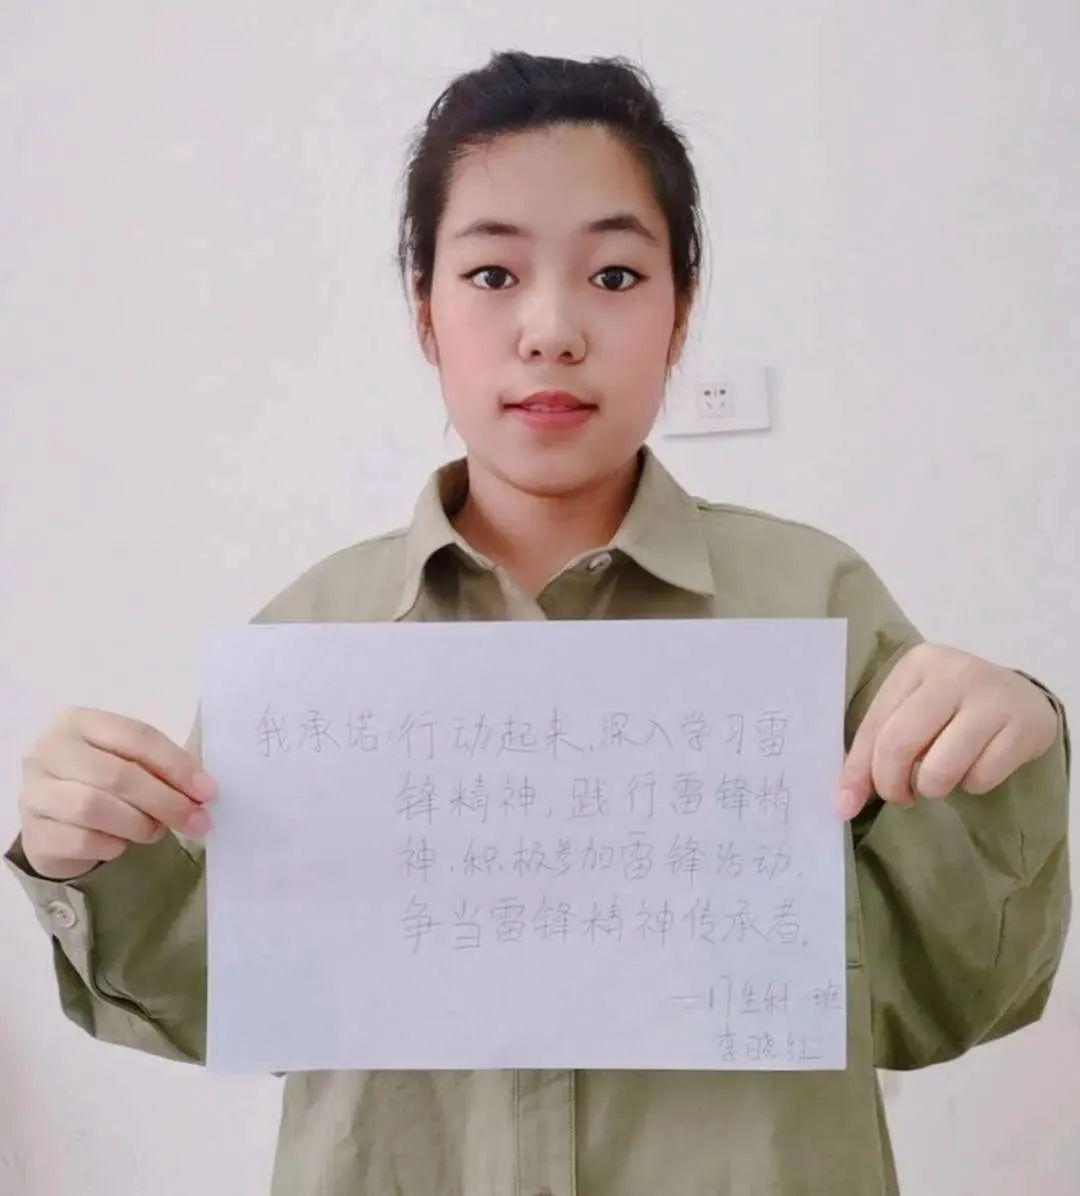 我承诺:行动起来,深入学习雷
锋精神,践行雷锋精
神,积极参加雷锋活动,
争当雷锋精神传承者.
生科 班
李晓红